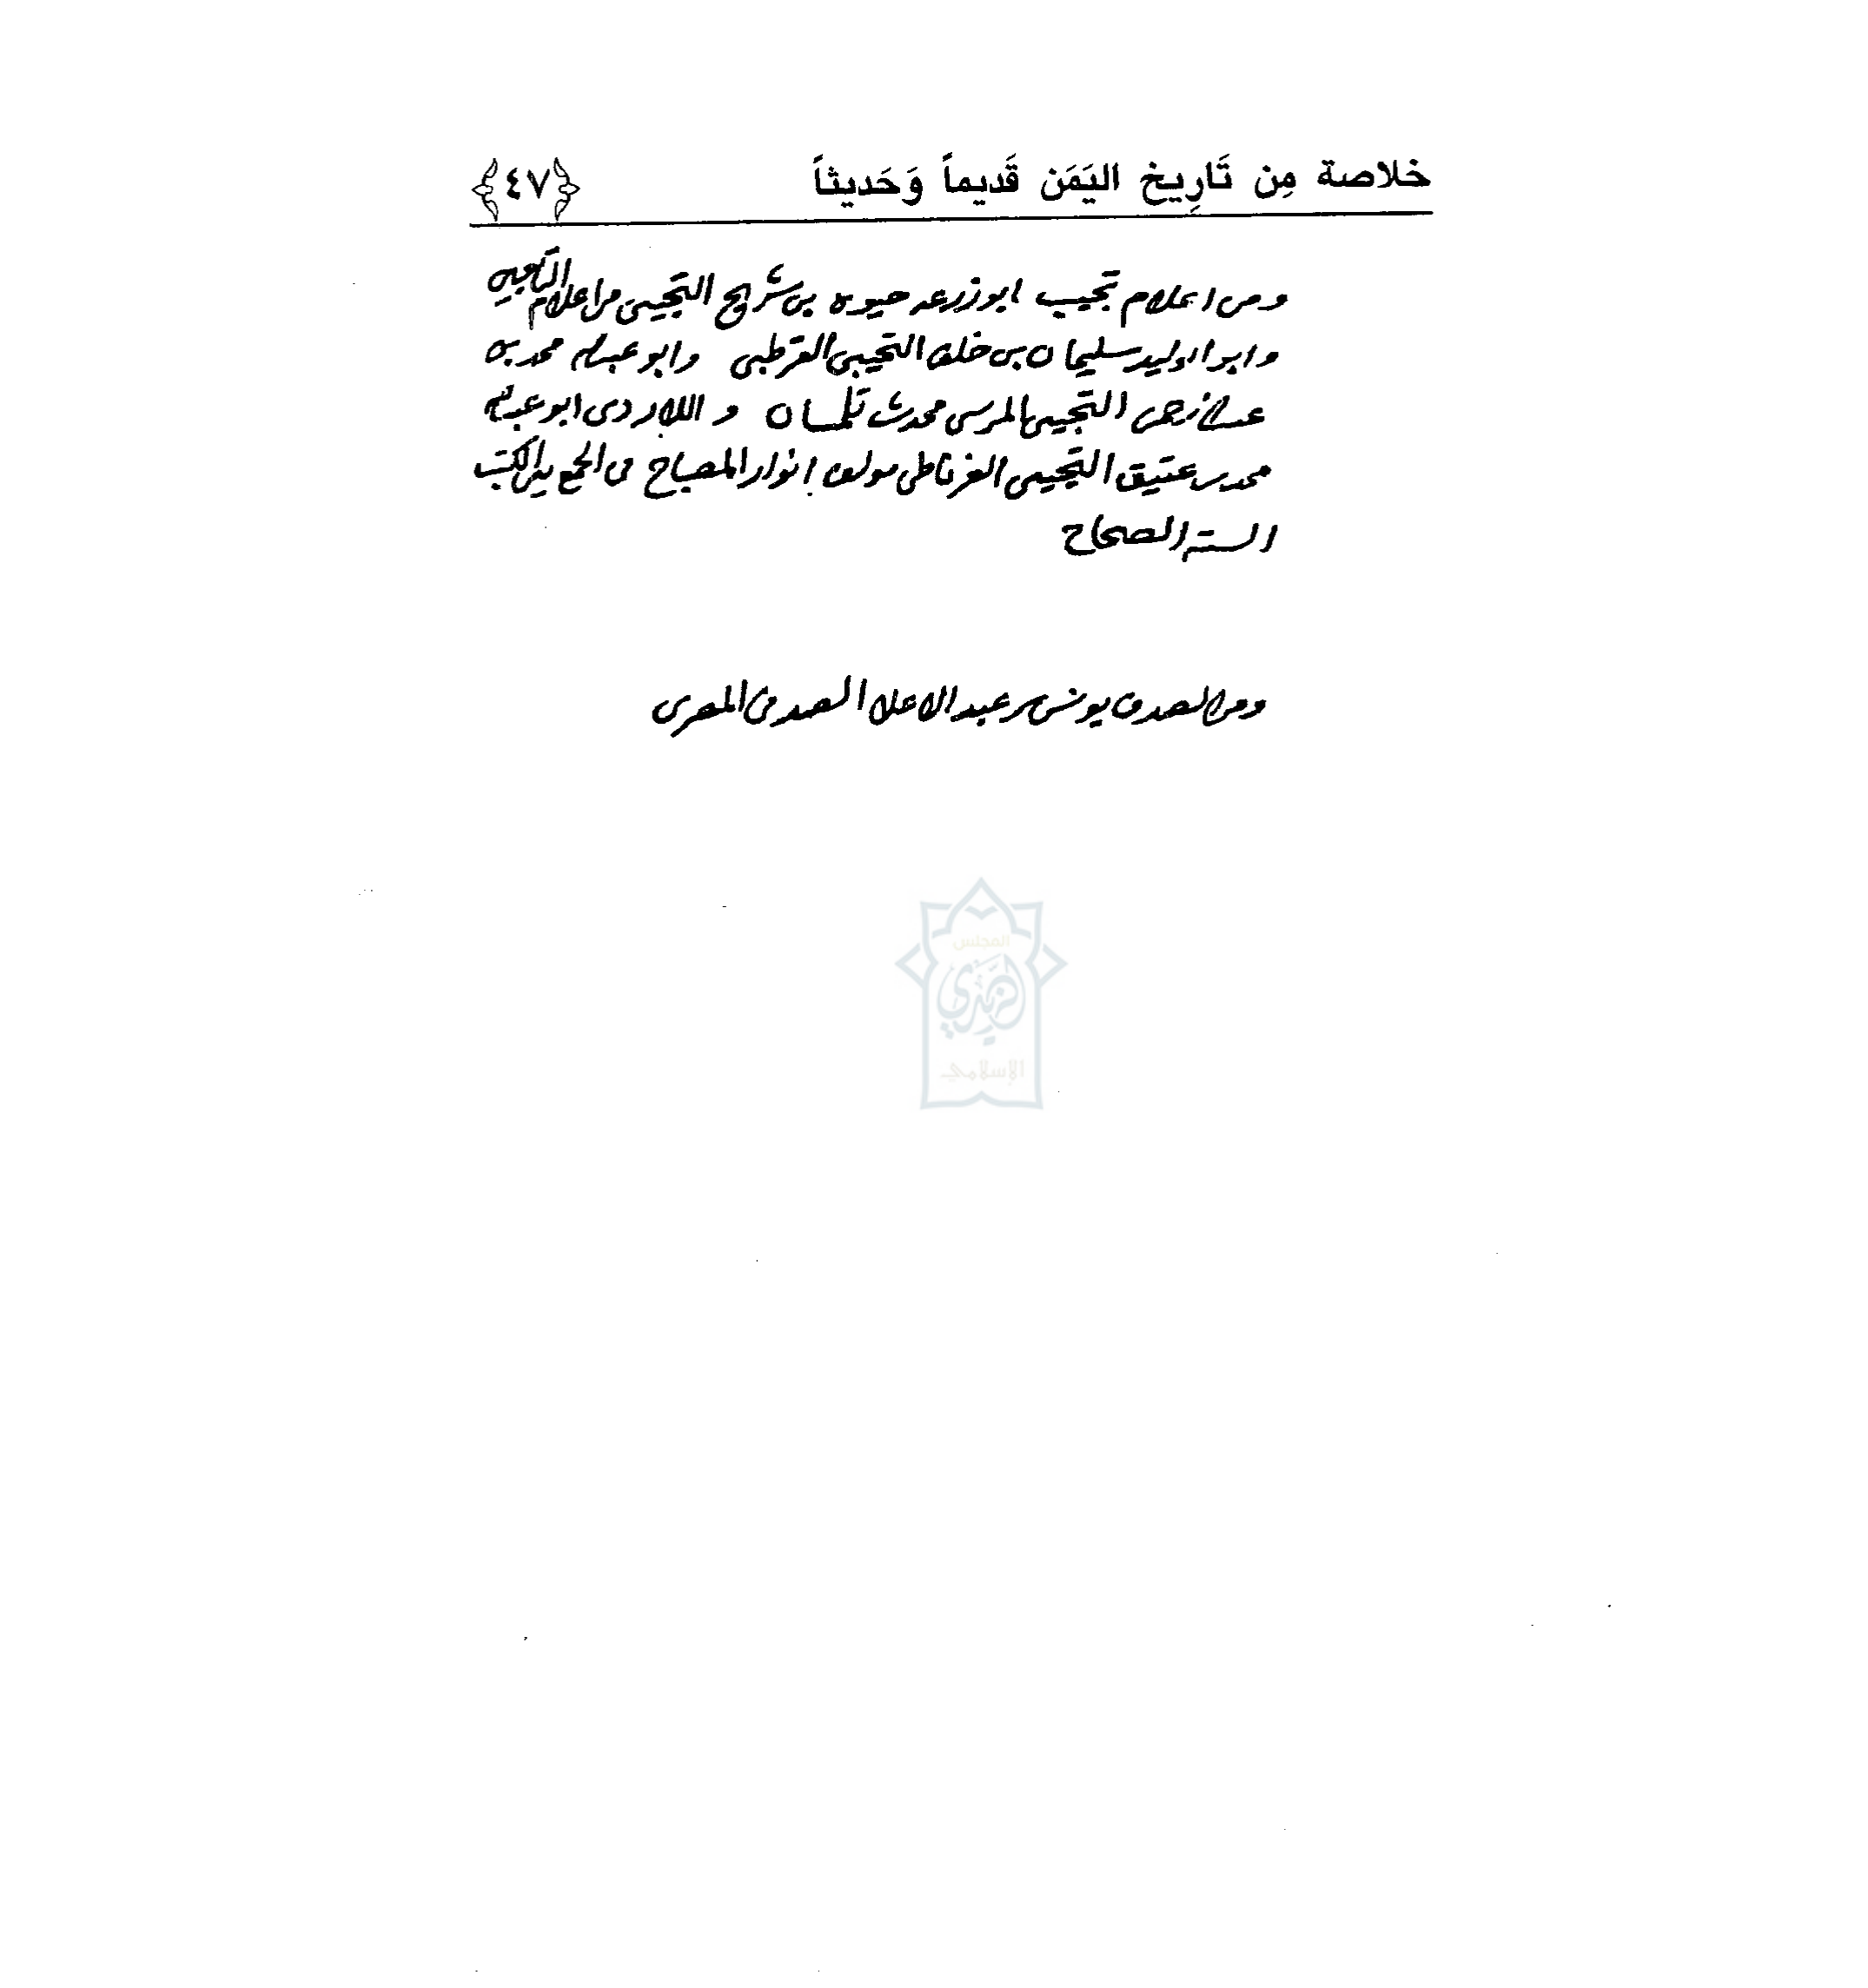 خلاصة مِن تَارِيخ اليَمَن قَديماً وَحَديثاً ﴿٤٧﴾
ومن اعلام تجيب ابو زرعه حيوه بن شريح التجيبى من اعلام التابعين
وابو الوليد سليمان بن خلف التجيبى القرطبى وابو عبدالله محمد بن
عبدالرحمن التجيبى المرسى محدث تلمسان و اللاردى ابو عبدالله
محمد بن عتيق التجيبى الغرناطى مولف انوار المصباح فى الجمع بين الكتب
السته الصحاح
ومن الصدف يونس بن عبد الاعلا الصدفى المصرى
المجلس
الزيدي
الإسلامي